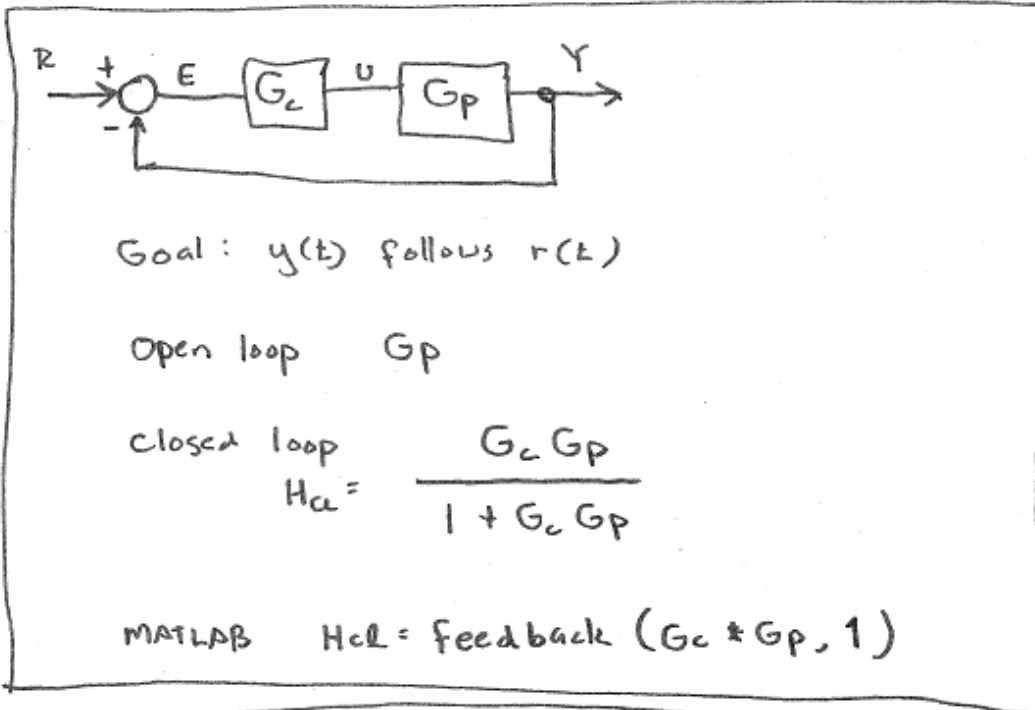 R + E Gc U Gp Y
-
Goal: y(t) follows r(t)
Open loop Gp
Closed loop Gc Gp
Hcl = ———
1 + Gc Gp
MATLAB Hcl = feedback (Gc * Gp, 1)